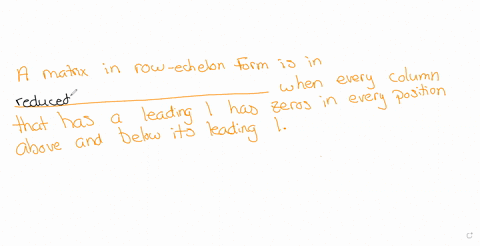 A matrix in row-echelon form is in
reduced __________ when every column
that has a leading 1 has zeros in every position
above and below its leading 1.